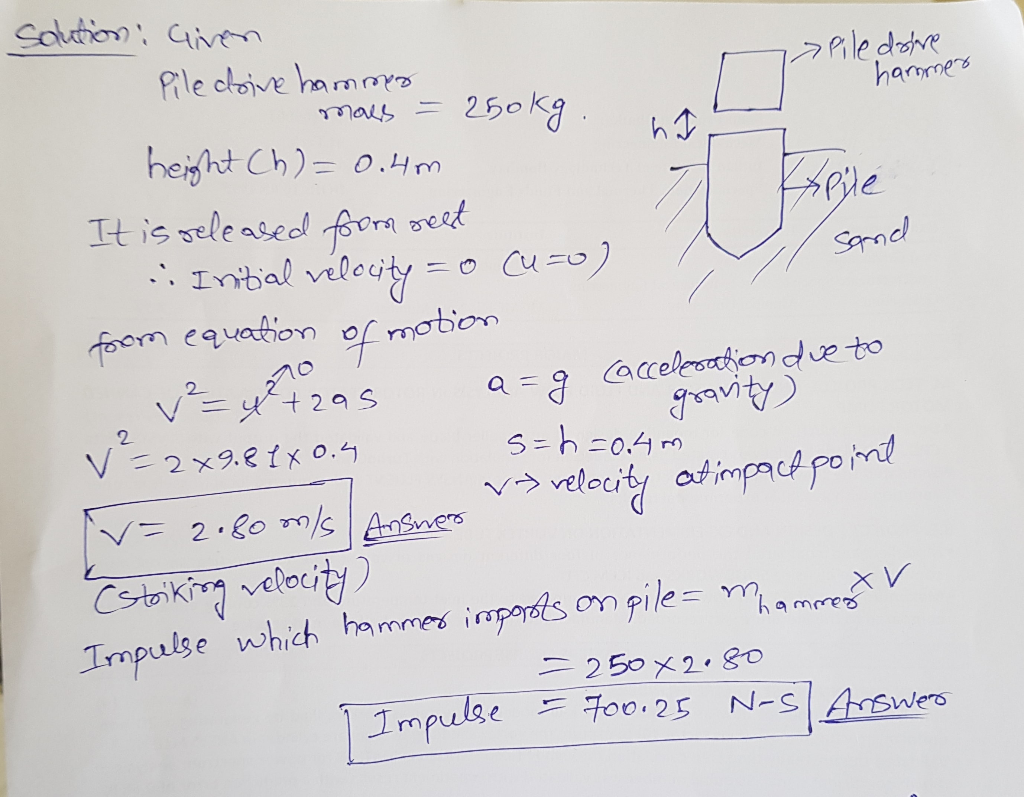 Solution: Given
Pile drive hammer
mass = 250kg.
height (h) = 0.4m
It is released from rest
∴ Initial velocity = 0 (u=0)
from equation of motion
v² = u²↗0 + 2as
v² = 2×9.81×0.4
v = 2.80 m/s Answer
(striking velocity)
→ Pile drive
hammer
h ↕
→ Pile
Sand
a = g (acceleration due to
gravity)
s = h = 0.4m
v → velocity at impact point
Impulse which hammer imparts on pile = m hammer × V
= 250 × 2.80
Impulse = 700.25 N-S Answer